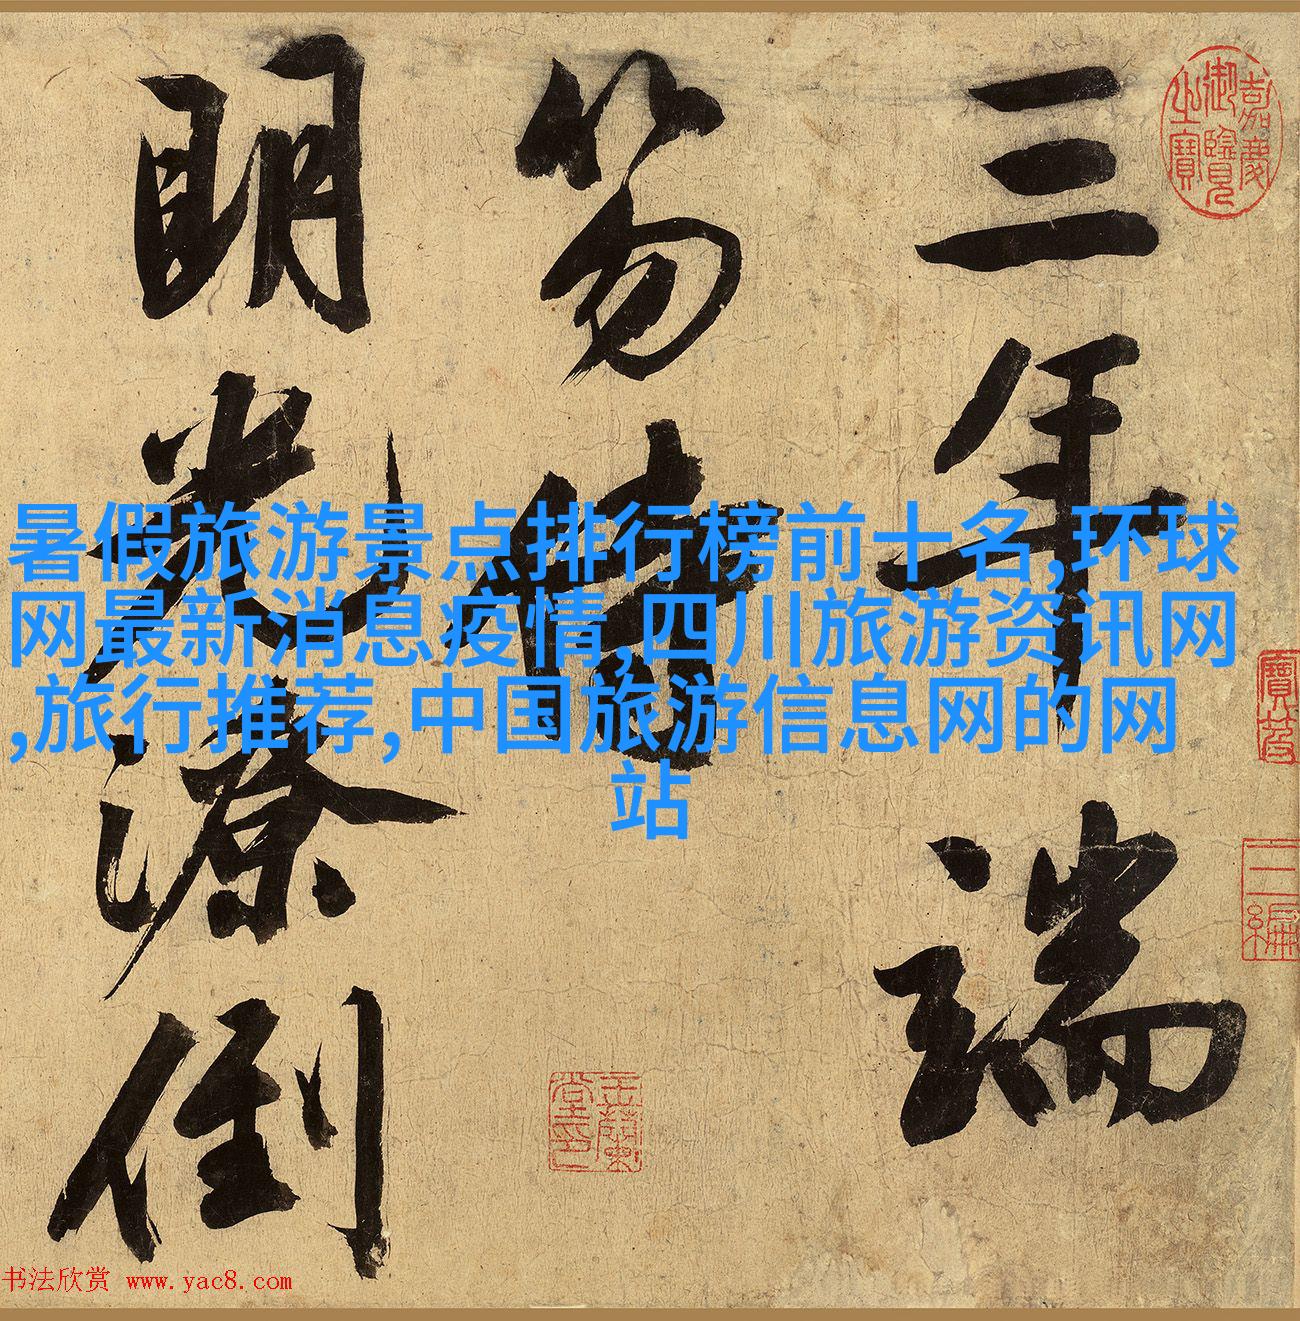 三年端
笏侍
明光潦倒
嘉慶御覽之寶
寶笈
三編
暑假旅游景点排行榜前十名,环球
网最新消息疫情,四川旅游资讯网
,旅行推荐,中国旅游信息网的网
站
书法欣赏 www.yac8.com